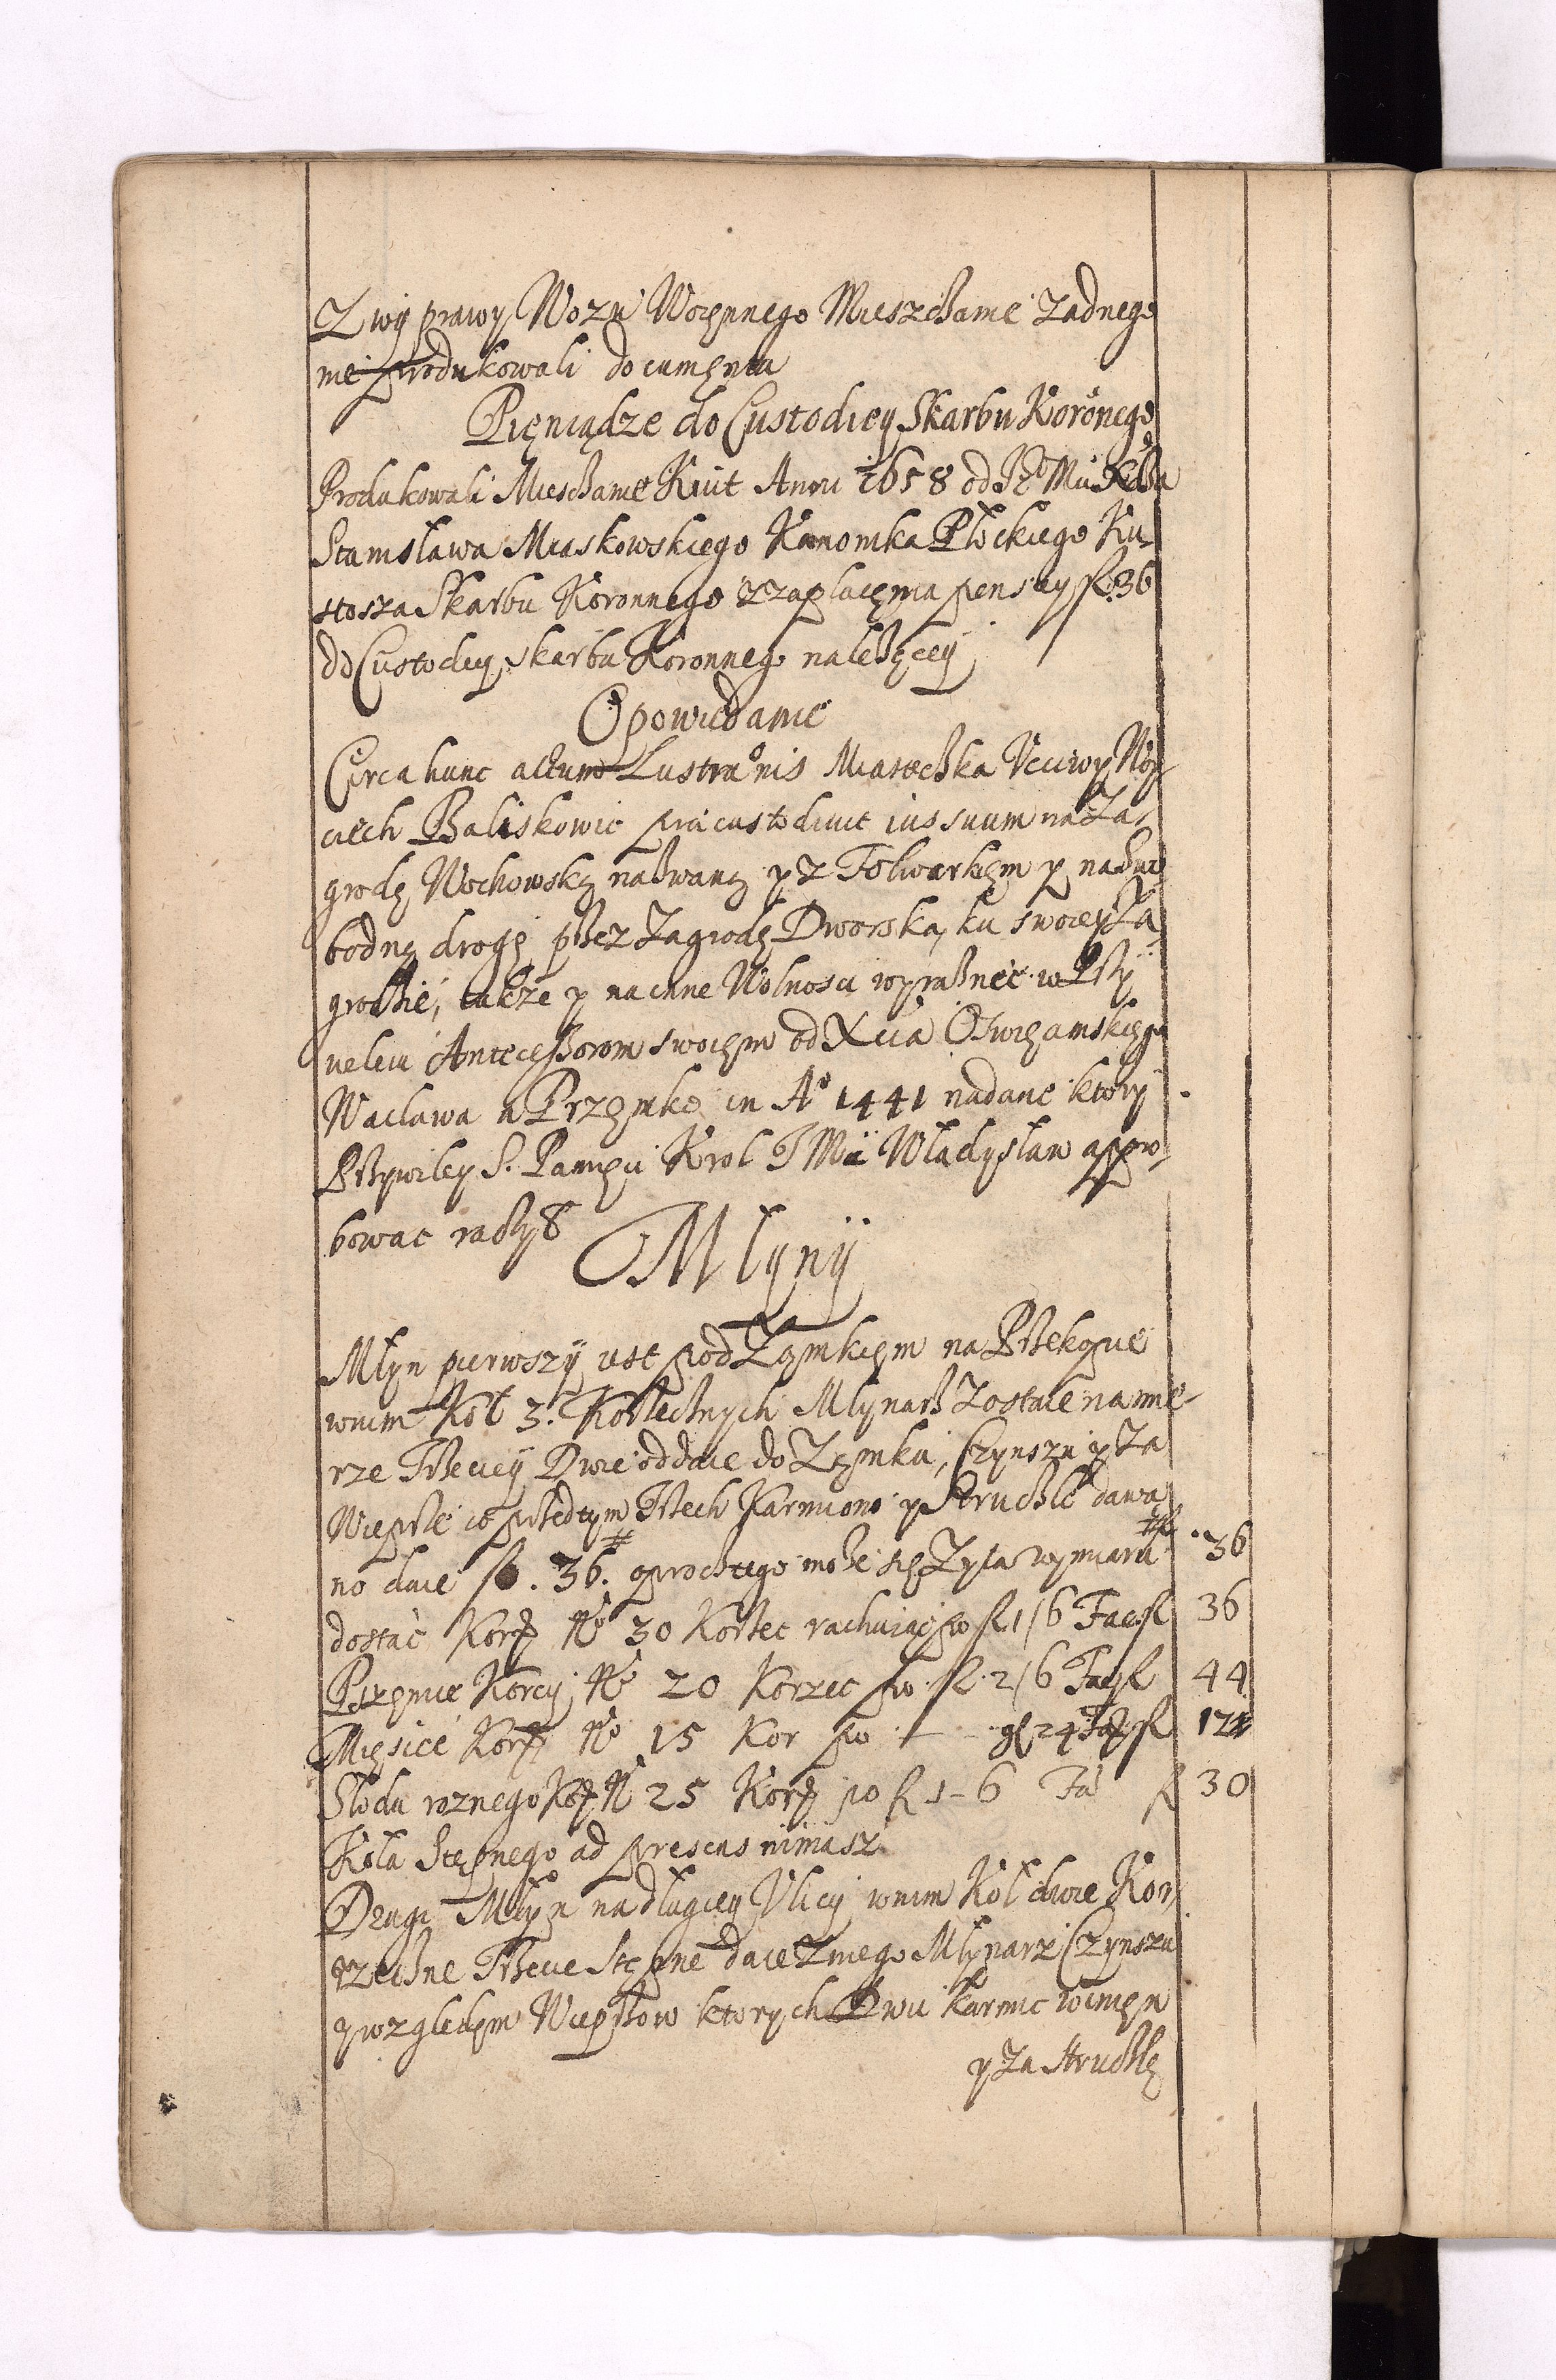 Z wyprawy Wozu Woiennego Mieszczanie zadnego
nie produkowali documentu
Pieniądze do Custodiey Skarbu Koronego
Produkowali Miesczanie Kwit Anni 1658 od Je° Mci Xdza
Stanisława Miaskowskiego Kanonika Płockiego Ku-
stosza Skarbu Koronnego z zapłacenia pensiey fl. 36
do Custodiey Skarbu Koronnego należącey
Opowiedanie
Circa hunc actum Lustra°nis Miasteczka Vcciwy Woy-
ciech Baliskowic præcustodivit ius suum na Za-
grodę Wochowską nazwaną y z Folwarkiem y na swo-
bodną drogę przez Zagrodę Dworską, ku swoiey Za-
grodzie, także y na inne Wolnosci wyrażnie w Przy-
veleiu Antecessorom swoiem od Xcia Oswięcimskiego
Wacława a Przemko in A° 1441 nadane ktory
Przywiley S. Pamięci Krol J Mci Władysław appro-
bowac raczył
Młyny
Młyn pierwszy iest pod Zamkiem na Przekopie
w nim Koł 3. Korzecznych Młynarz zostaie na mie-
rze Trzeciey Dwie oddaie do Zamku, Czynszu y za
Wieprze co przedtym Trzech Karmiono y Struczle dawa-
no daie fl. 36. # oprocz tego może się Zyta wymiaru # fl 36
dostać Korcy N° 30 Korzec rachuiąc po fl 1/6 Facit fl 36
Pszenice Korcy N° 20 Korzec po fl. 2/6 Facit fl 44
Mięsice Korcy N° 15 Kor po - - gr 24 Facit fl 12
Słodu roznego Korcy N° 25 Korcy po fl 1-6 Fa fl 30
Koła Stępnego ad presens nimasz
Drugi Młyn na długiey Vlicy w nim Koł dwie Kor-
rzeczne Trzecie Stępne daie z niego Młynarz Czynszu
y względem Wieprzow ktorych Dwu karmic winien
y za Struczlę